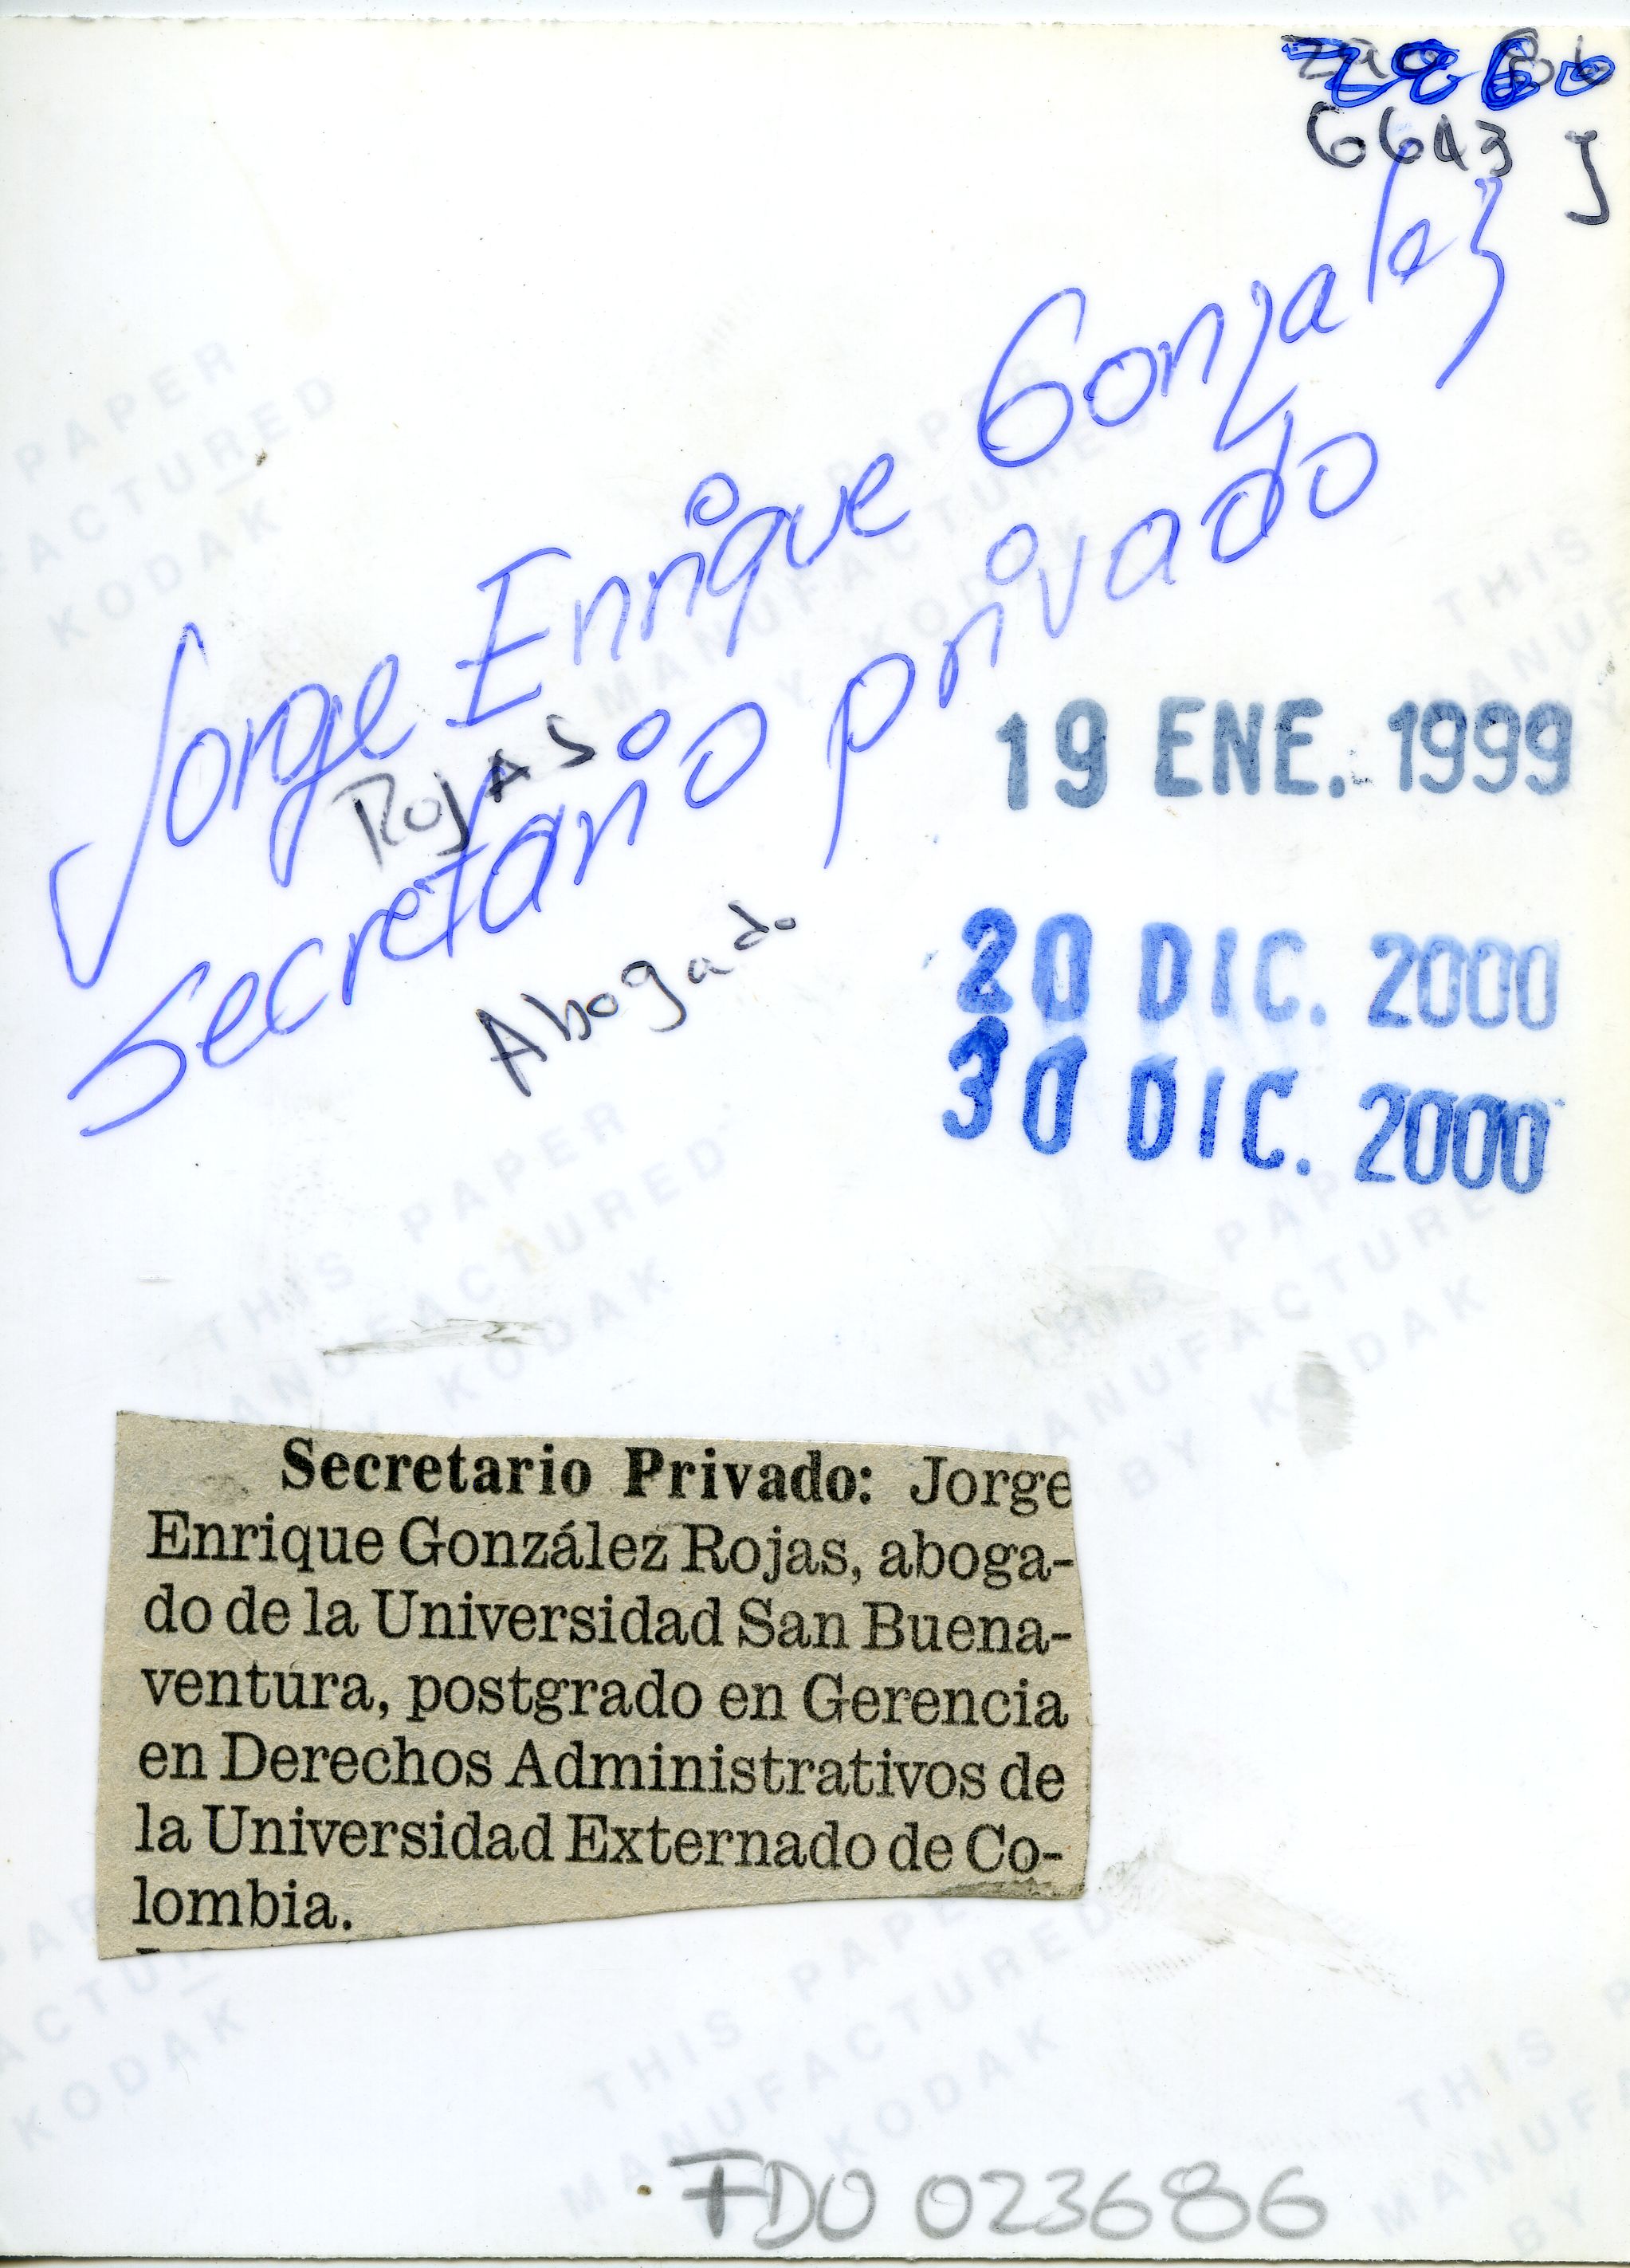 6643 J
Jorge Enrique Gonzalez
Rojas
Secretario privado
Abogado
19 ENE. 1999
20 DIC. 2000
30 DIC. 2000
Secretario Privado: Jorge
Enrique González Rojas, aboga-
do de la Universidad San Buena-
ventura, postgrado en Gerencia
en Derechos Administrativos de
la Universidad Externado de Co-
lombia.
FDO 023686
THIS PAPER
MANUFACTURED
BY KODAK